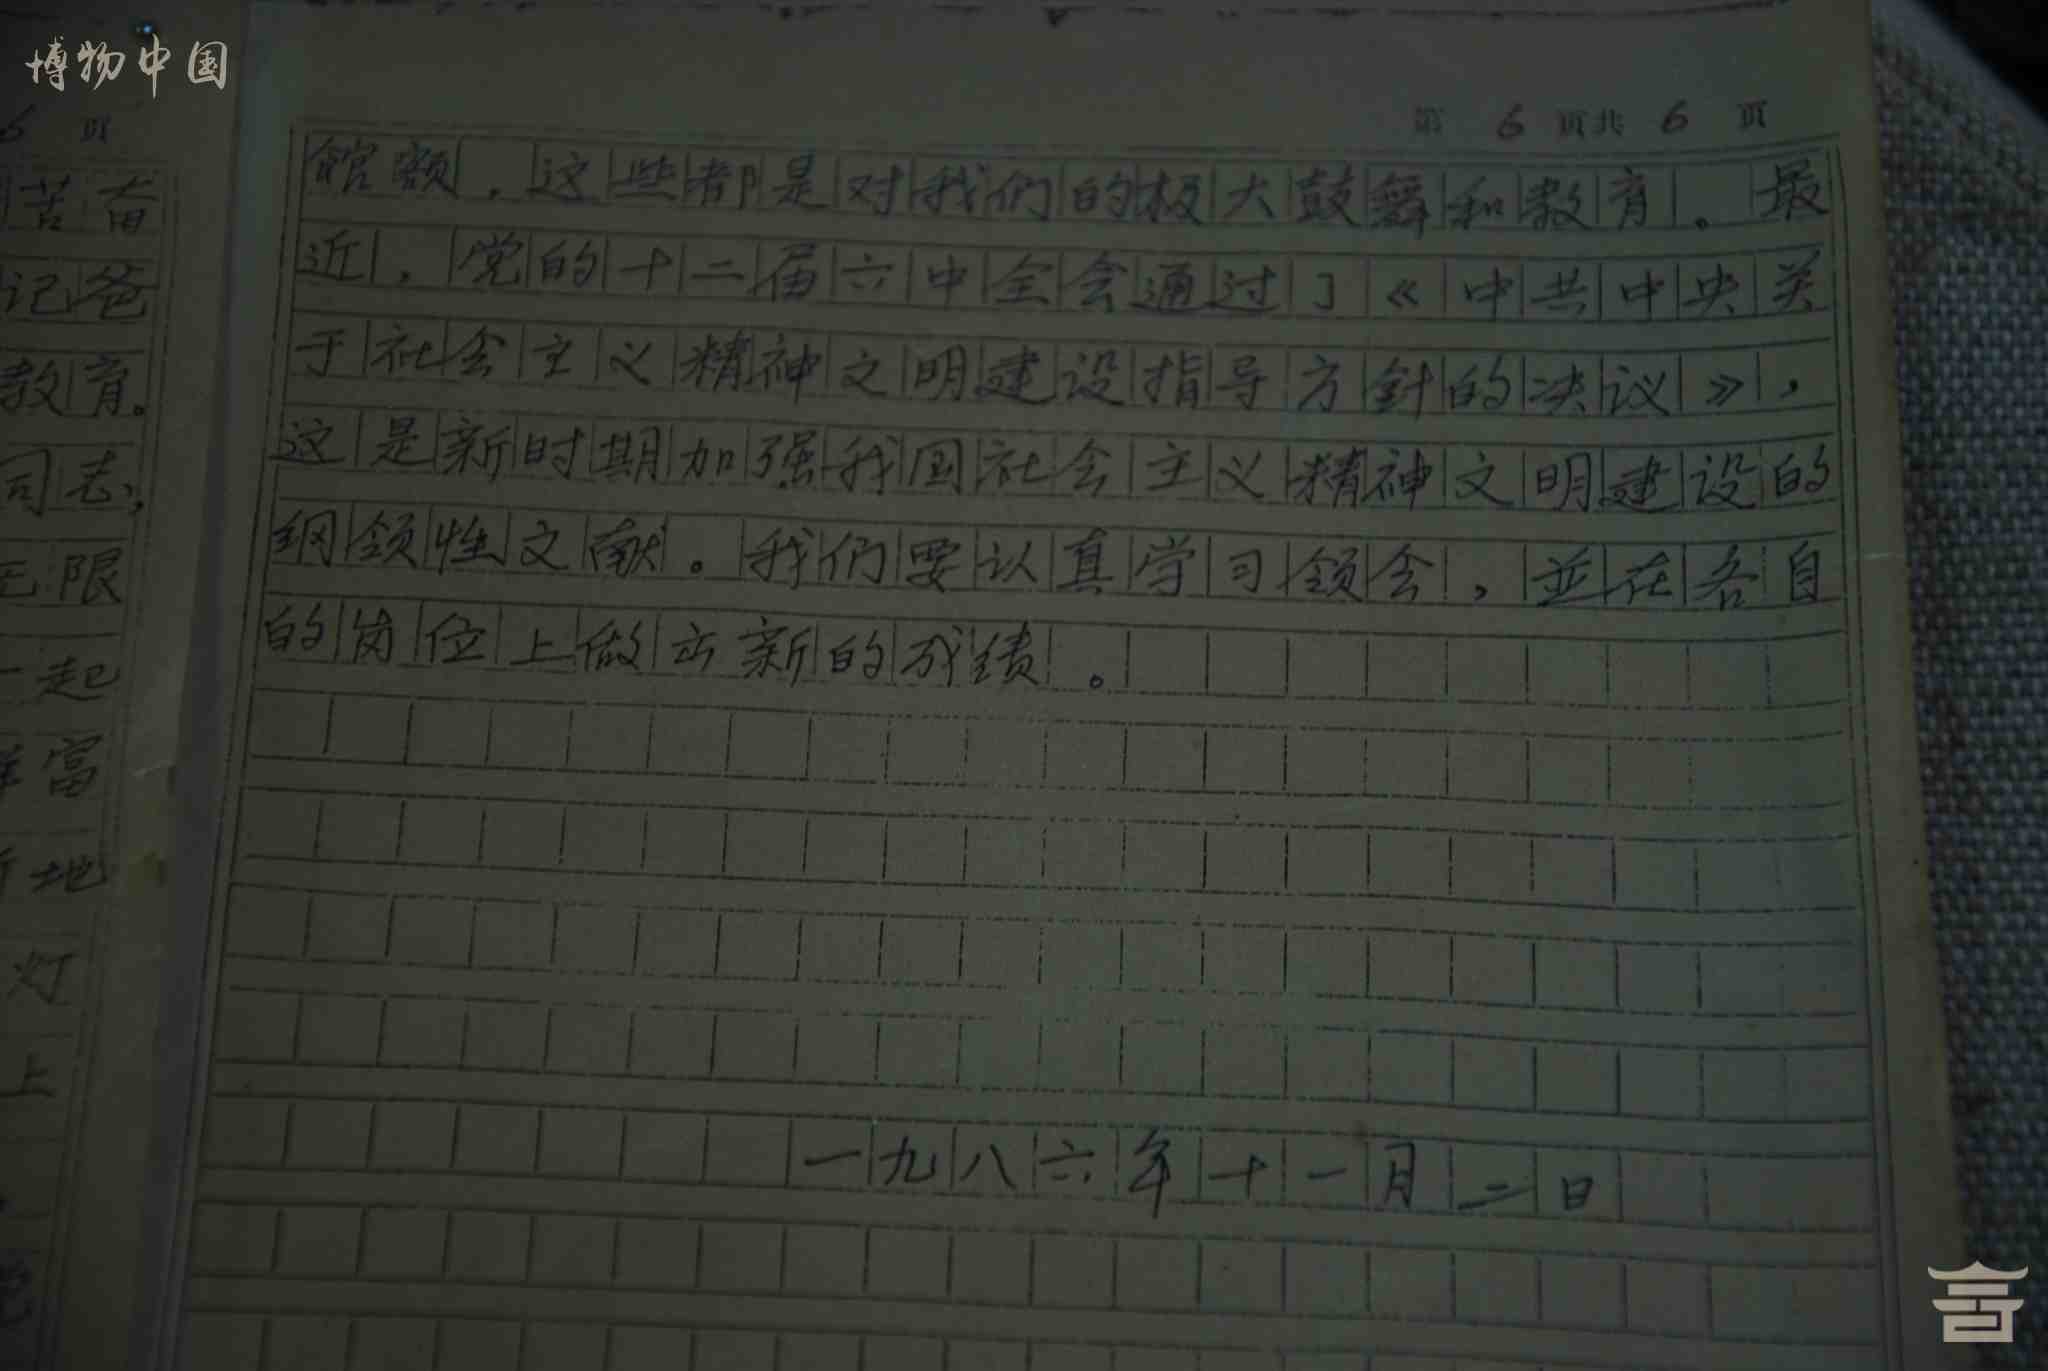 博物中国
第 6 页共 6 页
馆额，这些都是对我们的极大鼓舞和教育。最
近，党的十二届六中全会通过了《中共中央关
于社会主义精神文明建设指导方針的决议》，
这是新时期加强我国社会主义精神文明建设的
纲领性文献。我们要认真学习领会，並在各自
的岗位上做出新的成绩。
一九八六年十一月二日
6 页
苦奋
记爸
教育。
同志，
无限
一起
富
地
灯
上